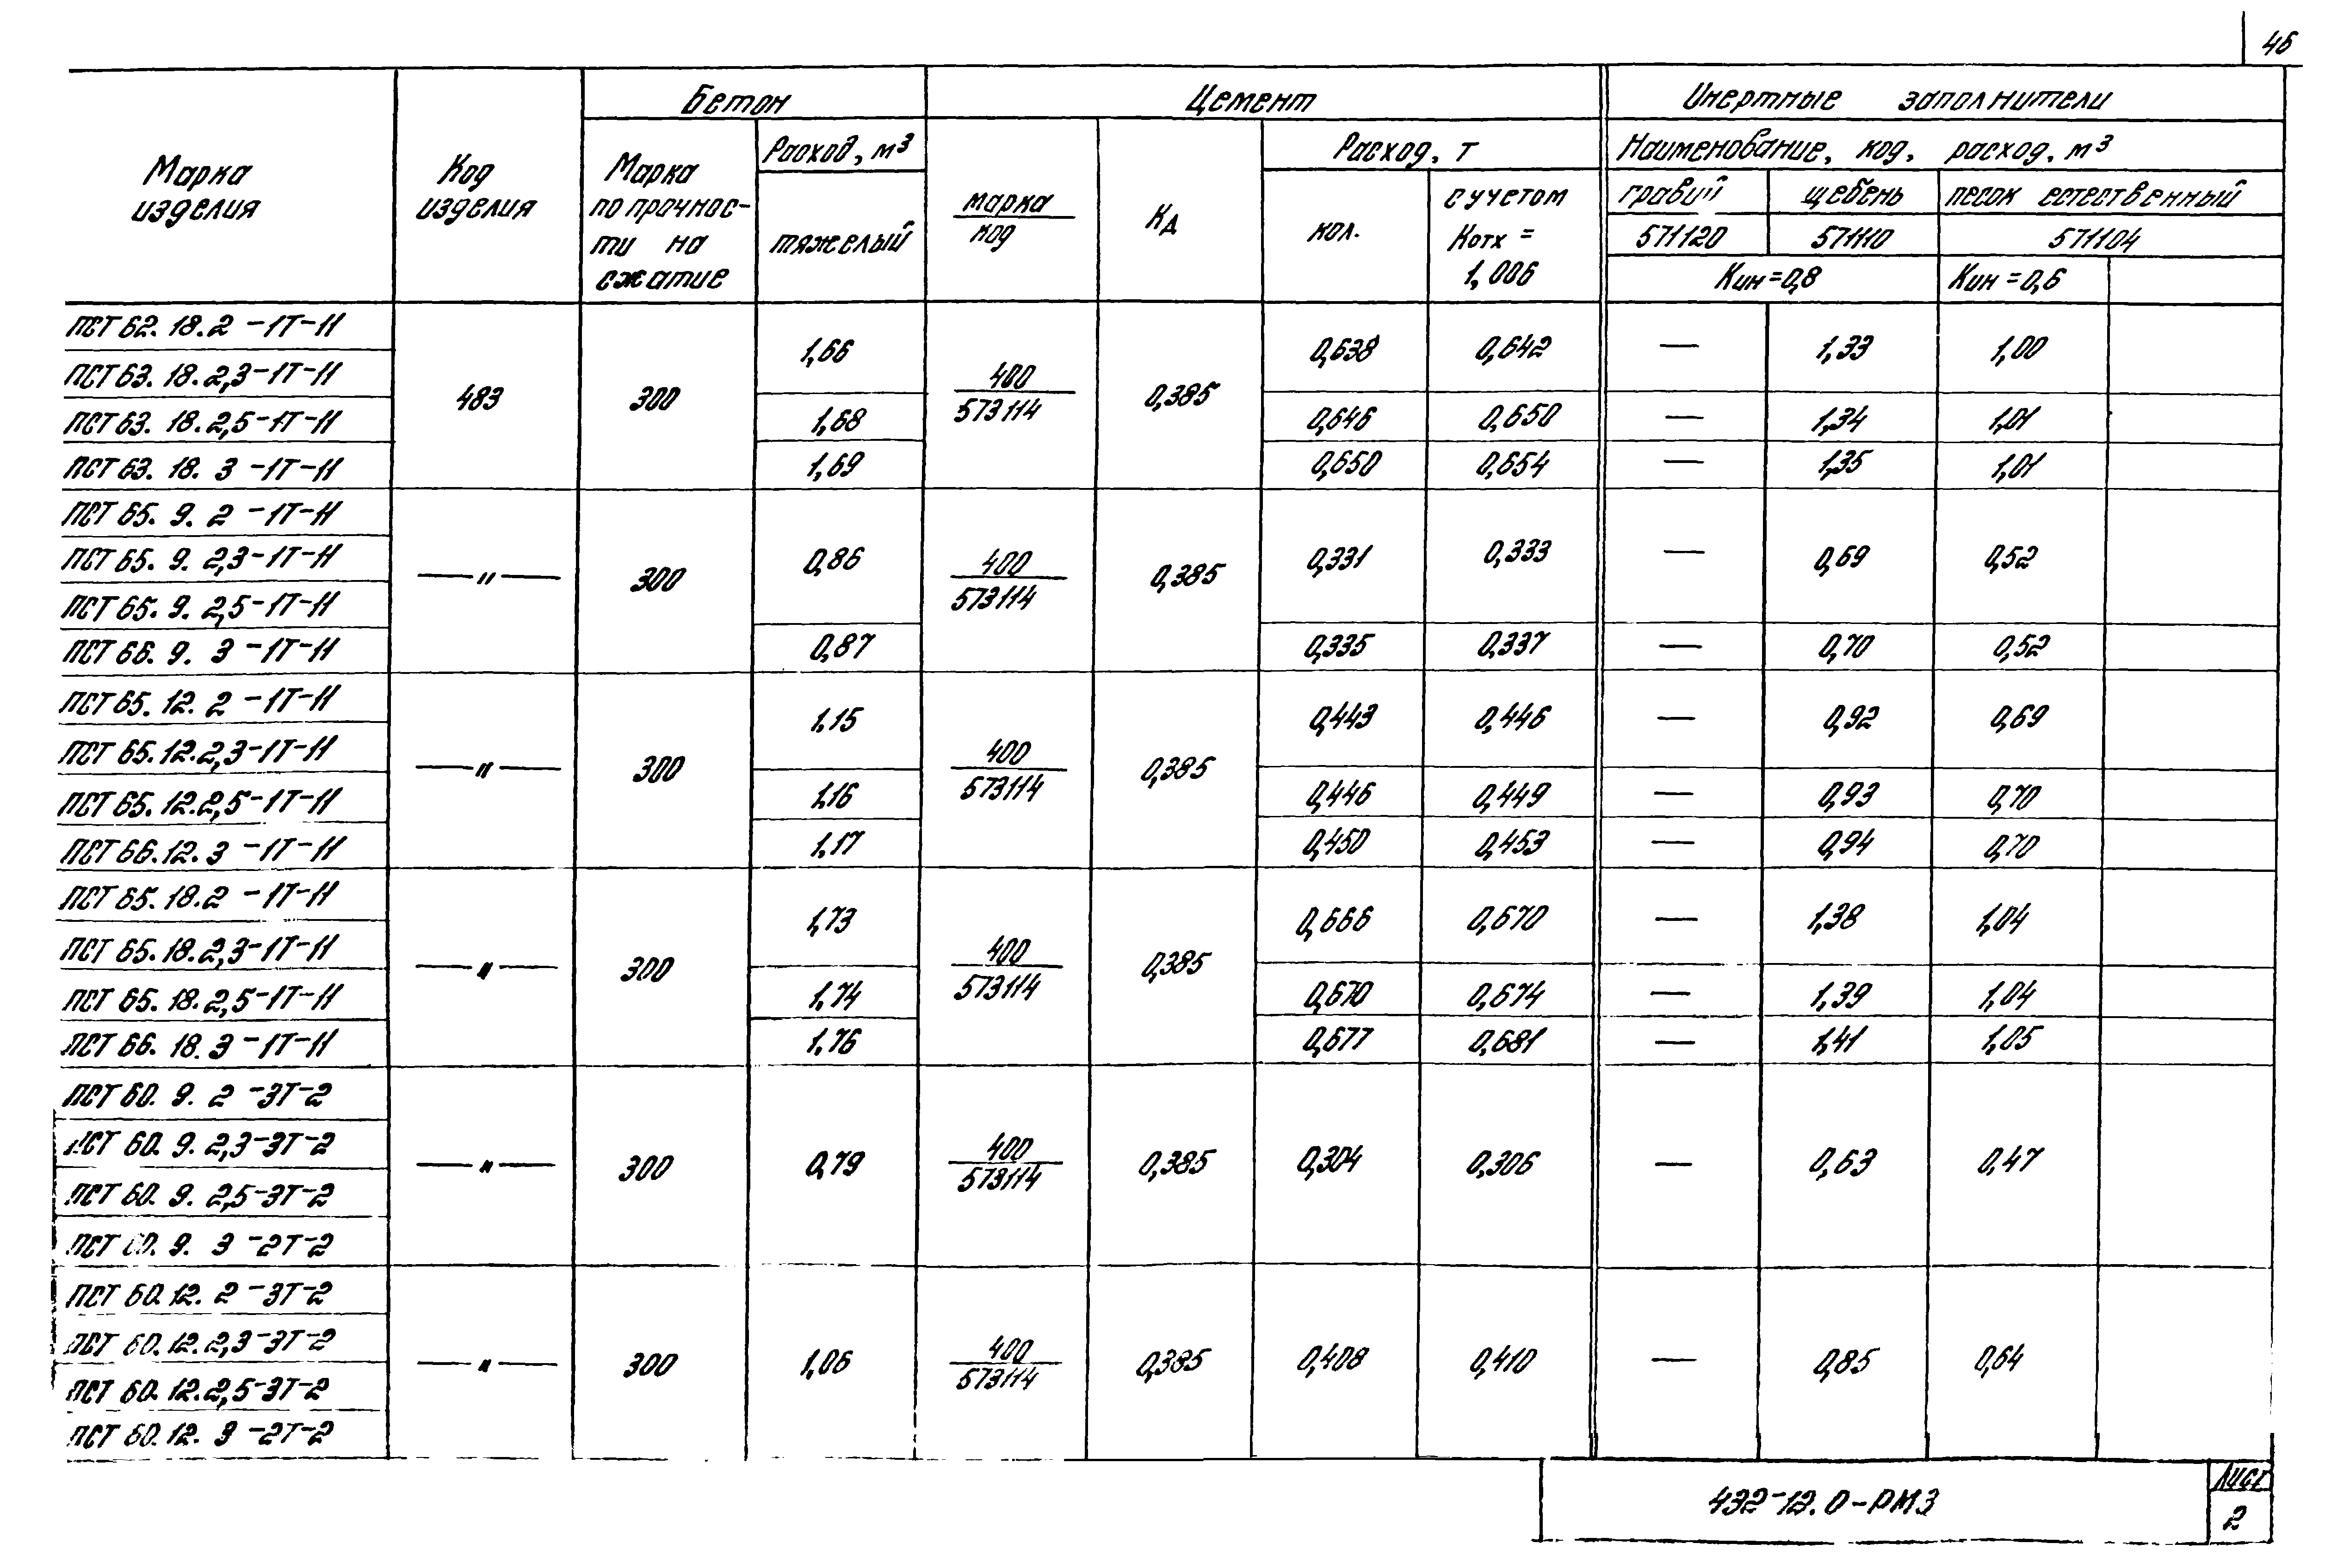 46
Бетон Цемент Инертные заполнители
Марка изделия
Код изделия
Марка по прочнос-
ти на
сжатие
Расход, м³
тяжелый
марка
код
Кд
Расход, т
кол.
с учетом
Котх =
1,006
Наименование, код, расход, м³
гравий щебень песок естественный
571120 571110 571104
Кин=0,8 Кин=0,6
ПСТ 62. 18. 2 -1Т-11
1,66 0,638 0,642 — 1,33 1,00
ПСТ 63. 18. 2,3-1Т-11
483 300 400 0,385
573114
ПСТ 63. 18. 2,5-1Т-11
1,68 0,646 0,650 — 1,34 1,01
ПСТ 63. 18. 3 -1Т-11
1,69 0,650 0,654 — 1,35 1,01
ПСТ 65. 9. 2 -1Т-11
ПСТ 65. 9. 2,3-1Т-11
—"— 300 0,86 400 0,385 0,331 0,333 — 0,69 0,52
573114
ПСТ 65. 9. 2,5-1Т-11
ПСТ 66. 9. 3 -1Т-11
0,87 0,335 0,337 — 0,70 0,52
ПСТ 65. 12. 2 -1Т-11
1,15 0,443 0,446 — 0,92 0,69
ПСТ 65. 12. 2,3-1Т-11
—"— 300 400 0,385
573114
ПСТ 65. 12. 2,5-1Т-11
1,16 0,446 0,449 — 0,93 0,70
ПСТ 66. 12. 3 -1Т-11
1,17 0,450 0,453 — 0,94 0,70
ПСТ 65. 18. 2 -1Т-11
1,73 0,666 0,670 — 1,38 1,04
ПСТ 65. 18. 2,3-1Т-11
—"— 300 400 0,385
573114
ПСТ 65. 18. 2,5-1Т-11
1,74 0,670 0,674 — 1,39 1,04
ПСТ 66. 18. 3 -1Т-11
1,76 0,677 0,681 — 1,41 1,05
ПСТ 60. 9. 2 -3Т-2
ПСТ 60. 9. 2,3-3Т-2
—"— 300 0,79 400 0,385 0,304 0,306 — 0,63 0,47
573114
ПСТ 60. 9. 2,5-3Т-2
ПСТ 60. 9. 3 -2Т-2
ПСТ 60. 12. 2 -3Т-2
ПСТ 60. 12. 2,3-3Т-2
—"— 300 1,06 400 0,385 0,408 0,410 — 0,85 0,64
573114
ПСТ 60. 12. 2,5-3Т-2
ПСТ 60. 12. 3 -2Т-2
432-12.0-РМ3
Лист
2